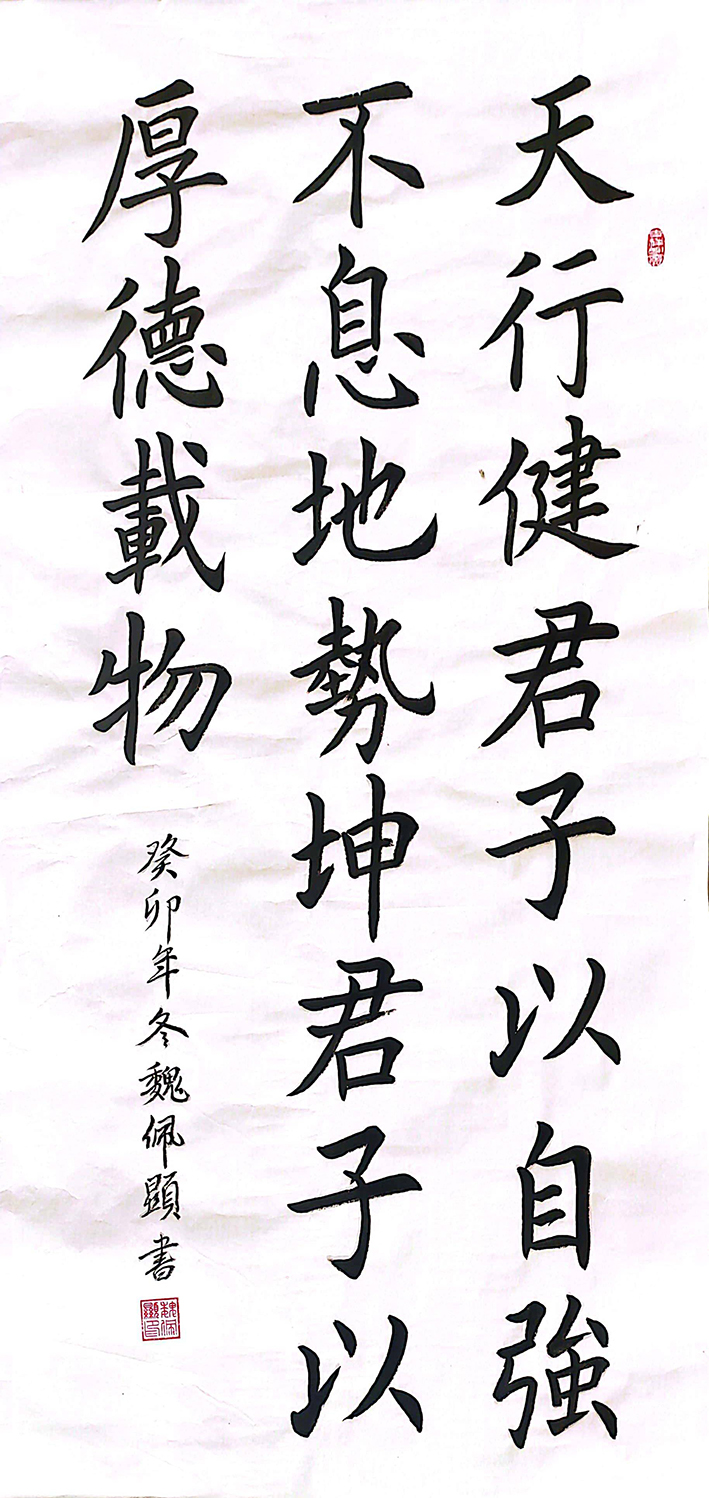 天行健君子以自強
不息地勢坤君子以
厚德載物
癸卯年冬魏佩顯書
魏佩顯印